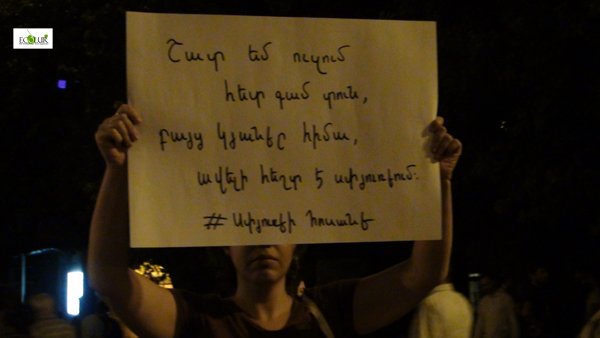 ECOLUR
Շատ եմ ուզում
հետ գամ տուն,
բայց կյանքը հիմա,
ավելի հեշտ է սփյուռքում:
# Սփյուռքի հոսանք